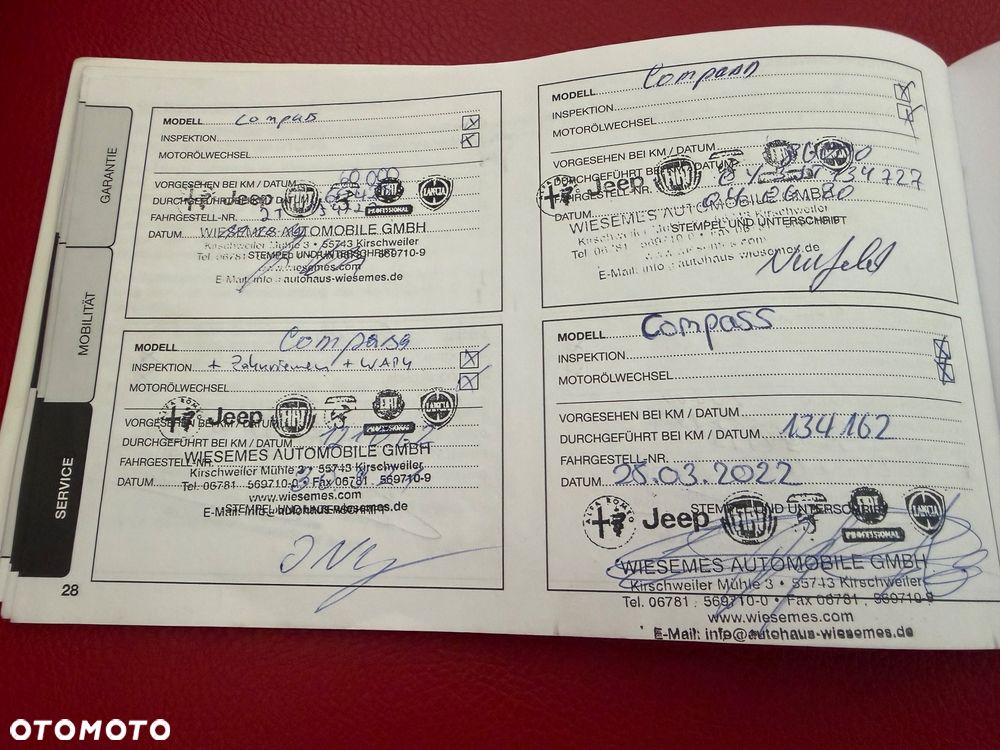 GARANTIE
MOBILITÄT
SERVICE
MODELL Compass
INSPEKTION
MOTORÖLWECHSEL
VORGESEHEN BEI KM / DATUM 60.000
DURCHGEFÜHRT BEI KM / DATUM
FAHRGESTELL-NR.
DATUM
Jeep FIAT PROFESSIONAL LANCIA
WIESEMES AUTOMOBILE GMBH
Kirschweiler Mühle 3 • 55743 Kirschweiler
STEMPEL UND UNTERSCHRIFT
www.wiesemes.com
E-Mail: info@autohaus-wiesemes.de
MODELL Compass
INSPEKTION
MOTORÖLWECHSEL
VORGESEHEN BEI KM / DATUM
DURCHGEFÜHRT BEI KM / DATUM
FAHRGESTELL-NR.
DATUM
Jeep FIAT
WIESEMES AUTOMOBILE GMBH
STEMPEL UND UNTERSCHRIFT
E-Mail: info@autohaus-wiesemes.de
MODELL Compass
INSPEKTION + Zahnriemen + WAPU
MOTORÖLWECHSEL
VORGESEHEN BEI KM / DATUM
DURCHGEFÜHRT BEI KM / DATUM
FAHRGESTELL-NR.
DATUM
ALFA ROMEO Jeep FIAT PROFESSIONAL LANCIA
WIESEMES AUTOMOBILE GMBH
Kirschweiler Mühle 3 • 55743 Kirschweiler
Tel. 06781 . 569710-0 • Fax 06781 . 569710-9
www.wiesemes.com
STEMPEL UND UNTERSCHRIFT
E-Mail: info@autohaus-wiesemes.de
MODELL Compass
INSPEKTION
MOTORÖLWECHSEL
VORGESEHEN BEI KM / DATUM
DURCHGEFÜHRT BEI KM / DATUM 134162
FAHRGESTELL-NR.
DATUM 25.03.2022
STEMPEL UND UNTERSCHRIFT
ALFA ROMEO Jeep FIAT PROFESSIONAL LANCIA
WIESEMES AUTOMOBILE GMBH
Kirschweiler Mühle 3 • 55743 Kirschweiler
Tel. 06781 . 569710-0 • Fax 06781 . 569710-9
www.wiesemes.com
E-Mail: info@autohaus-wiesemes.de
28
OTOMOTO